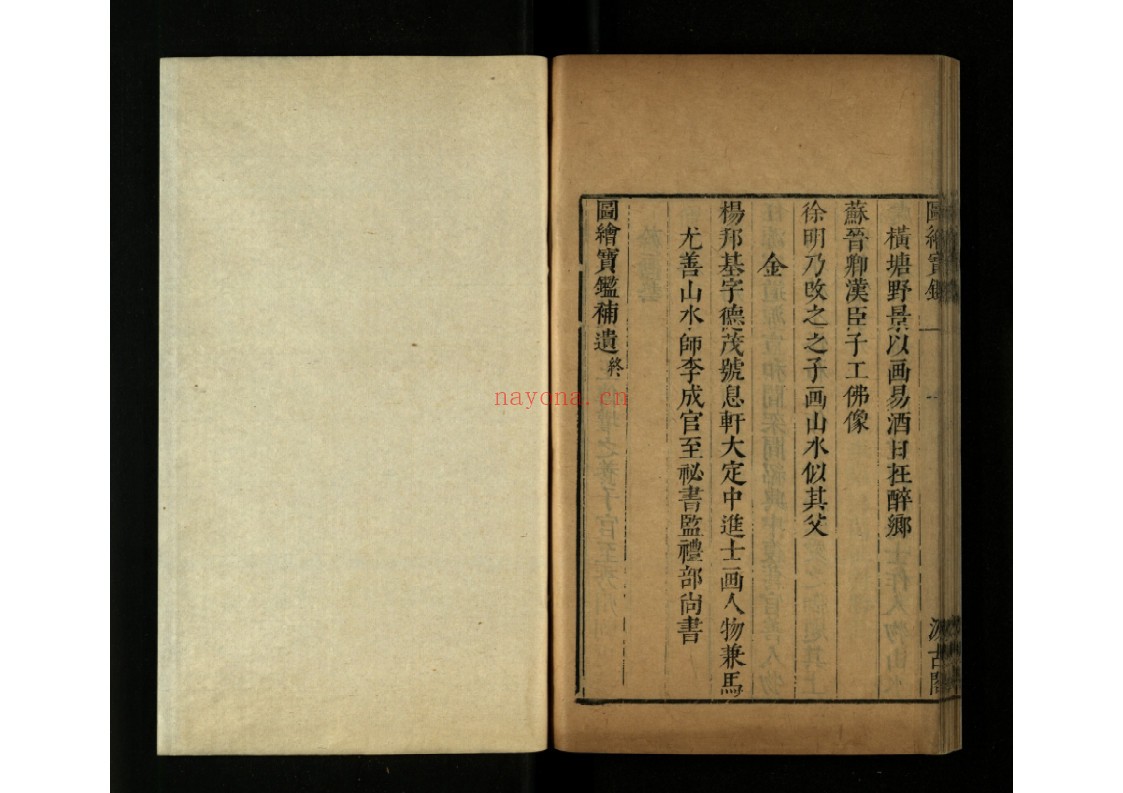 圖繪寶鑑
橫塘野景以画易酒日在醉鄉
蘇晉卿漢臣子工佛像
徐明乃改之之子画山水似其父
金
楊邦基字德茂號息軒大定中進士画人物兼馬
尤善山水師李成官至祕書監禮部尚書
圖繪寶鑑補遺終
nayona.cn